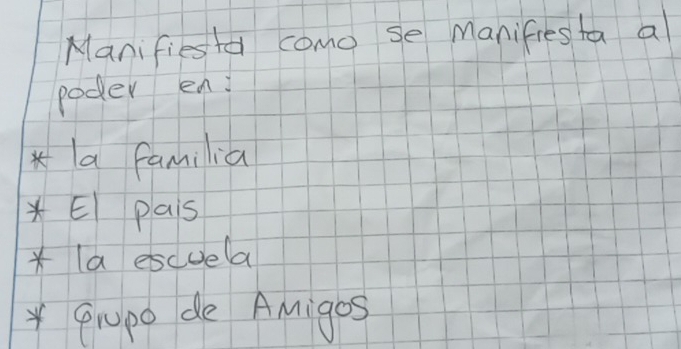 Manifiesta como se Manifiesta al
poder en:
* la familia
* El pais
* la escuela
* Grupo de Amigos